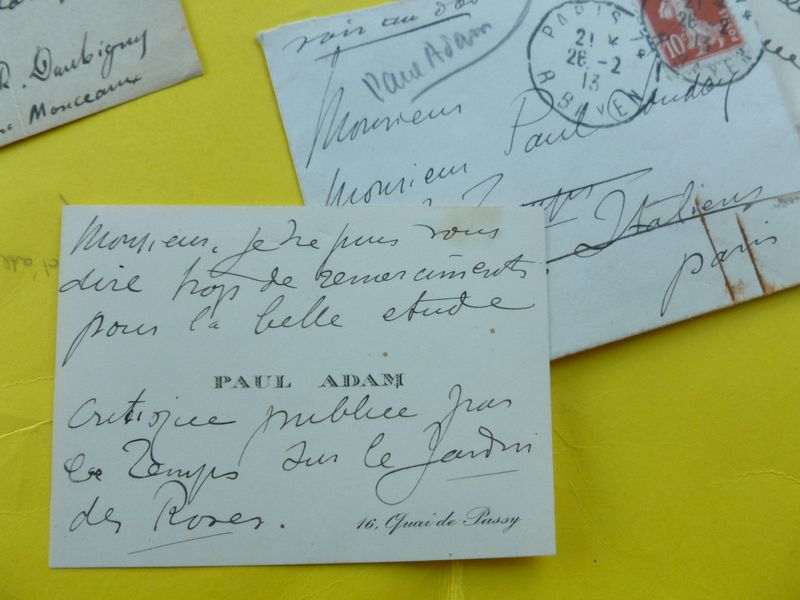 R. Daubigny
Monceaux
voir au dos
Paul Adam
PARIS
21
26-2
13
10c
Monsieur Paul Souday
Monsieur
Temps
Italiens
Paris
Monsieur, je ne puis vous
dire trop de remerciments
pour la belle etude
PAUL ADAM
critique publiee par
le Temps sur le Jardin
des Roses.
16, Quai de Passy